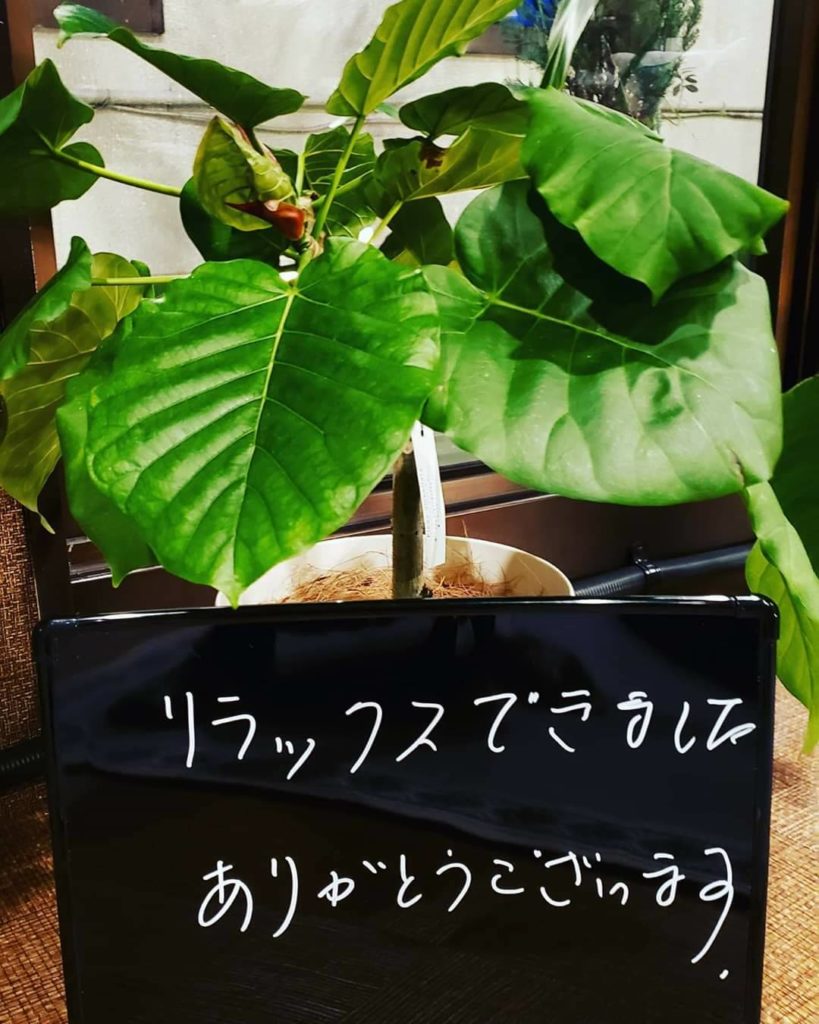 リラックスできました
ありがとうございます.